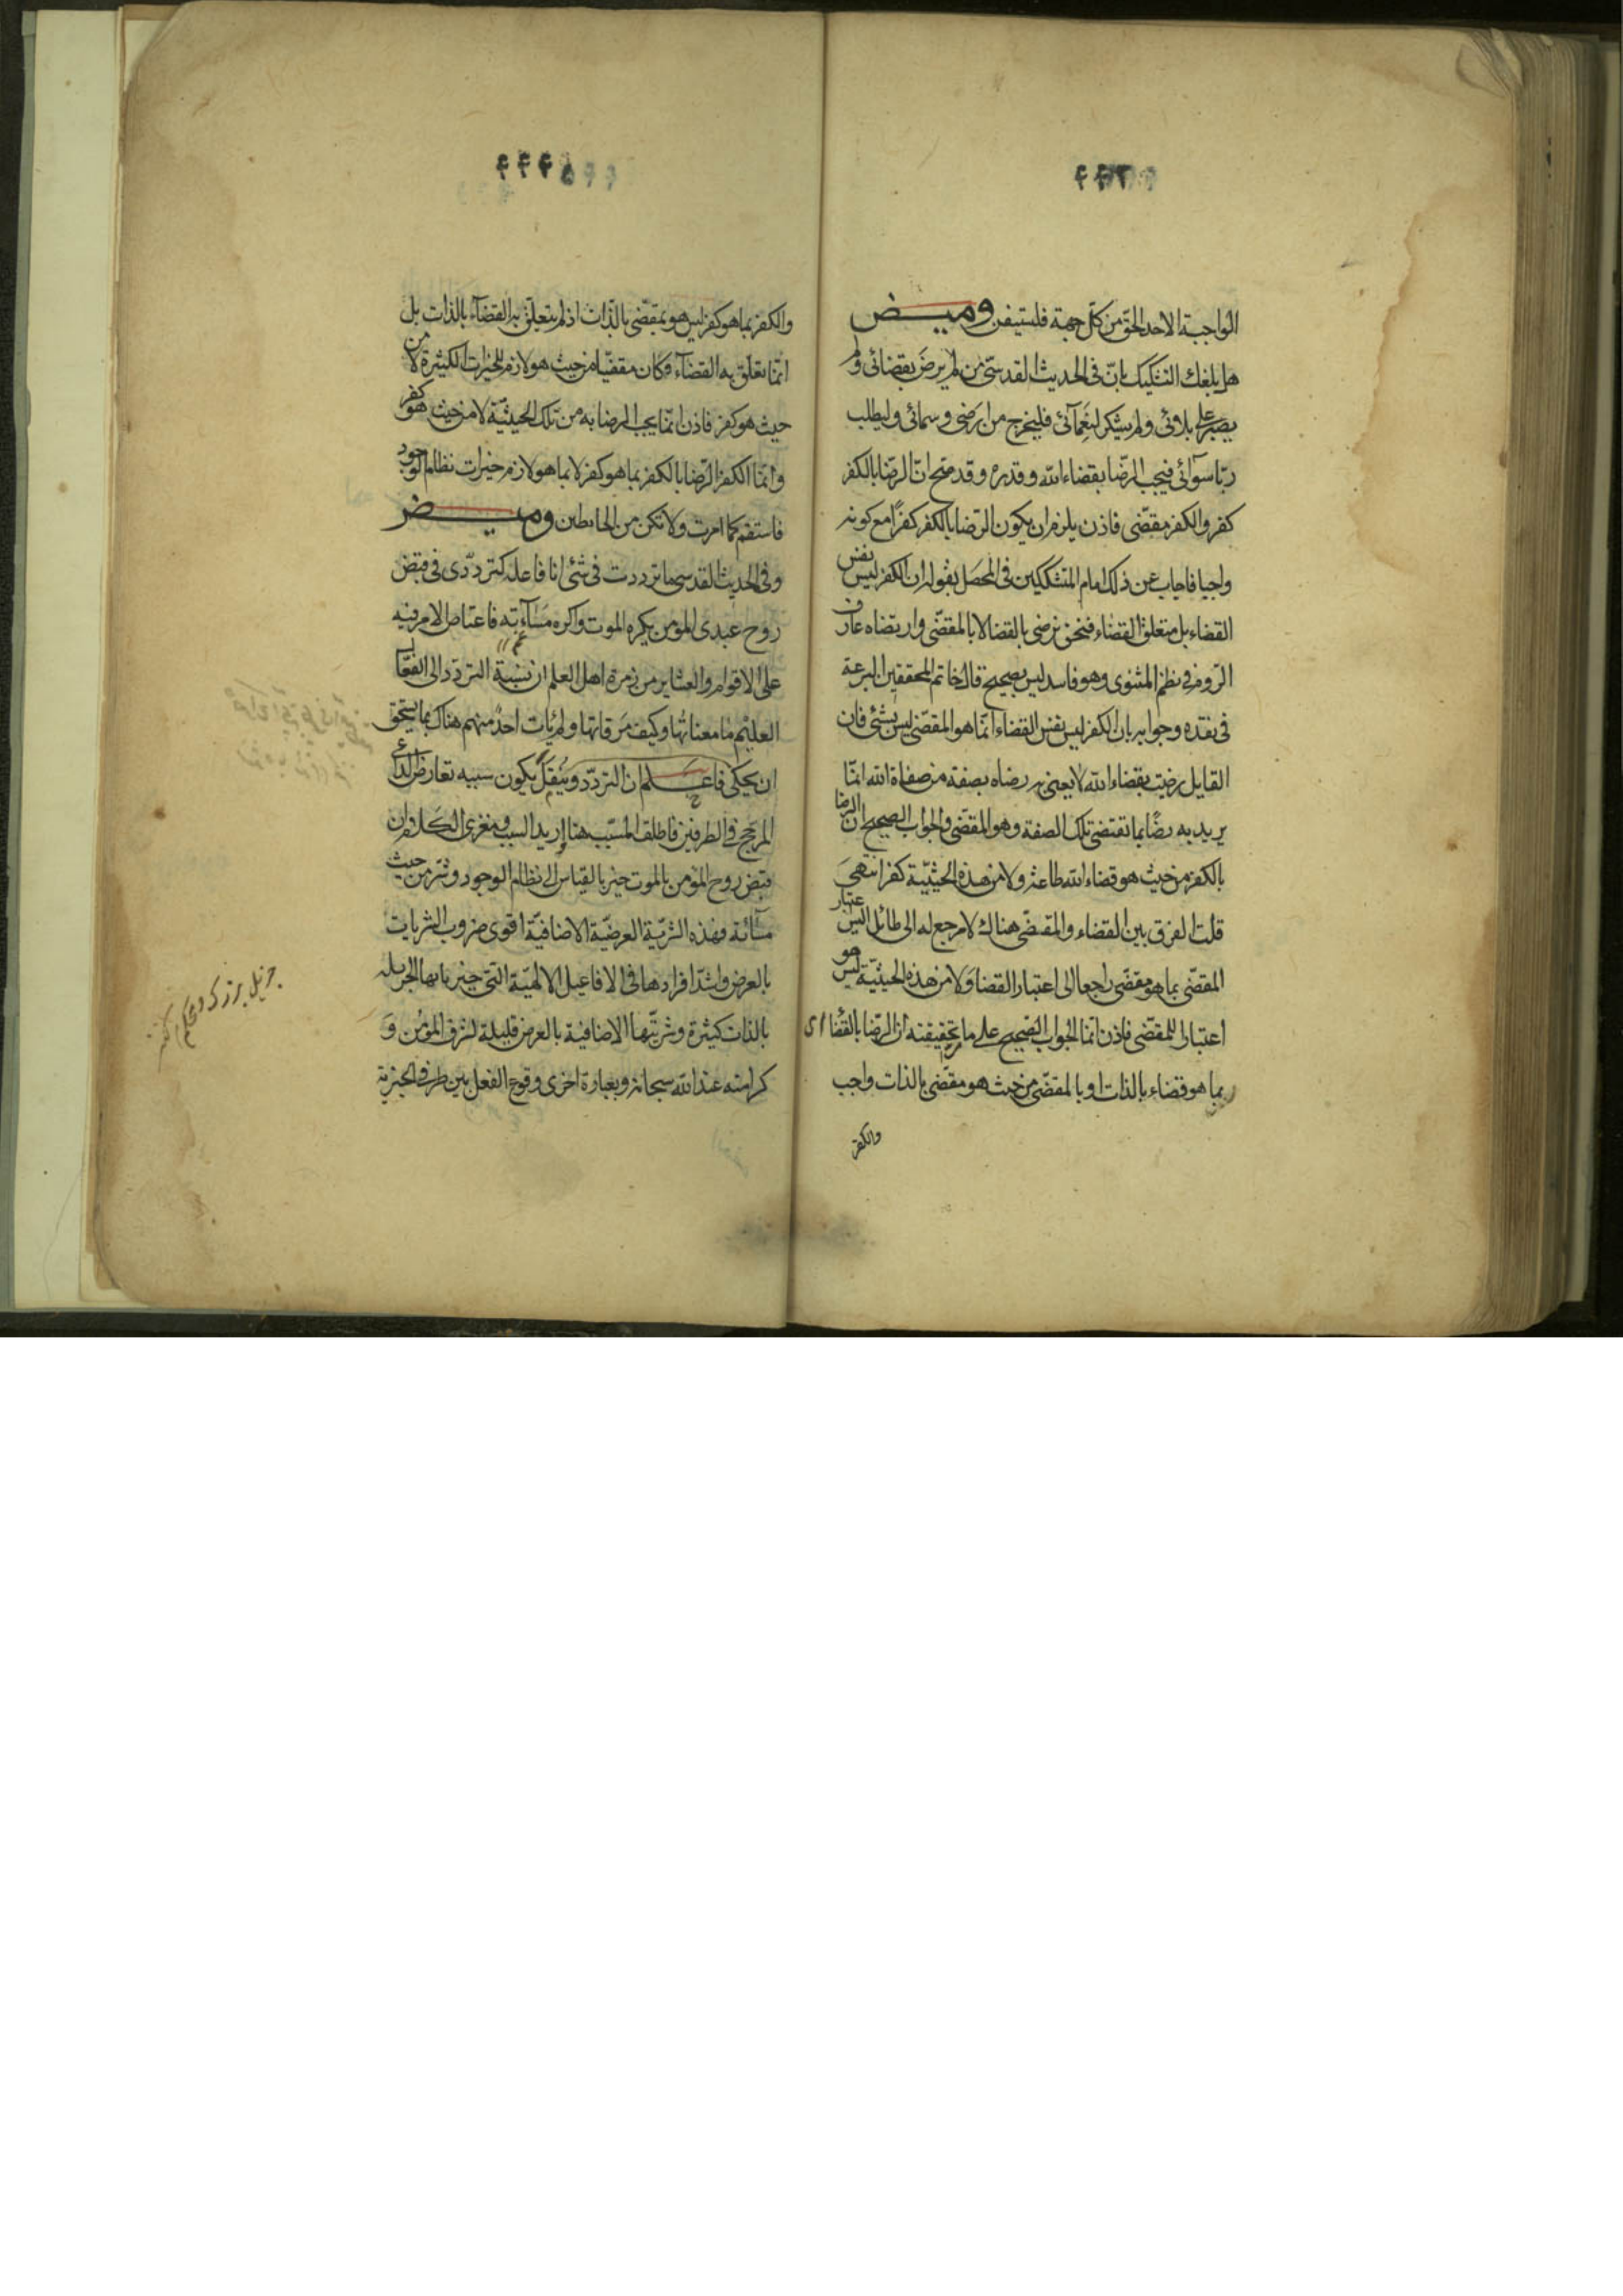 الواجبة الاحد الحق من كل جهة فلستيفن وميض
هل بلغك التشكيك بان فى الحديث القدسى من لم يرض بقضائى ولم
يصبر على بلائى ولم يشكر لنعمآئى فليخرج من ارضى وسمائى وليطلب
ربا سوآئى فيجب الرضا بقضاء الله وقدره وقد صح ان الرضا بالكفر
كفر والكفر مقضى فاذن يلزم ان يكون الرضا بالكفر كفرا مع كونه
واجبا فاجاب عن ذلك امام المتشككين فى المحصل بقوله ان الكفر ليس نفس
القضاء بل متعلق القضاء فنحن نرضى بالقضا لا بالمقضى وارتضاه عارف
الروم فى نظم المثنوى وهو فاسد ليس بصحيح قال خاتم المحققين البرعة
فى نقده وجوابه بان الكفر ليس نفس القضاء انما هو المقضى ليس بشئ فان
القايل رضيت بقضاء الله لا يعنى به رضاه بصفة من صفاة الله انما
يريد به رضا بما تقتضى تلك الصفة وهو المقضى والجواب الصحيح ان الرضا
بالكفر من حيث هو قضاء الله طاعة ولا من هذه الحيثية كفر انتهى
قلت الفرق بين القضاء والمقضى هناك لا مرجع له الى طائل اليس اعتبار
المقضى بما هو مقضى راجعا الى اعتبار القضا ولا من هذه الحيثية ليس هو
اعتبارا للمقضى فاذن انما الجواب الصحيح على ما تحقيقنه ان الرضا بالقضا اى
بما هو قضاء بالذات او بالمقضى من حيث هو مقضى بالذات واجب
والكفر
والكفر بما هو كفر ليس هو بمقضى بالذات اذ لم يتعلق به القضآء بالذات بل
انما تعلق به القضآء فكان مقضيا من حيث هو لازم للخيرات الكثيرة لا من
حيث هو كفر فاذن انما يجب الرضا به من تلك الحيثية لا من حيث هو كفر
وانما الكفر الرضا بالكفر بما هو كفر لا بما هو لازم خيرات نظام الوجود
فاستقم كما امرت ولا تكن من الخابطين وميض
وفى الحديث القدسى ما ترددت فى شئ انا فاعله كترددى فى قبض
روح عبدى المؤمن يكره الموت واكره مسآءته فاعتاص الامر فيه
على الاقوام والعشاير من زمرة اهل العلم ان نسبة التردد الى الفعال
العليم ما معناتها وكيف مرقاتها ولم يأت احد منهم هناك بما يستحق
ان يحكى فاعلم ان التردد ويكون سببه تعارض الداعى
المرجح فى الطرفين فاطلق المسبب هنا واريد السبب ومغزى الكلام ان
قبض روح المؤمن بالموت خير بالقياس الى نظام الوجود وشر من حيث
مسآئة وهذه الشرية العرضية الاضافية اقوى ضروب الشريات
بالعرض واشد افرادها فى الافاعيل الالهية التى خيرياتها الجزيلة
بالذات كثيرة وشريتها الاضافية بالعرض قليلة لشرف المؤمن و
كرامته عند الله سبحانه وبعبارة اخرى وقوع الفعل بين طرفى الخيرية